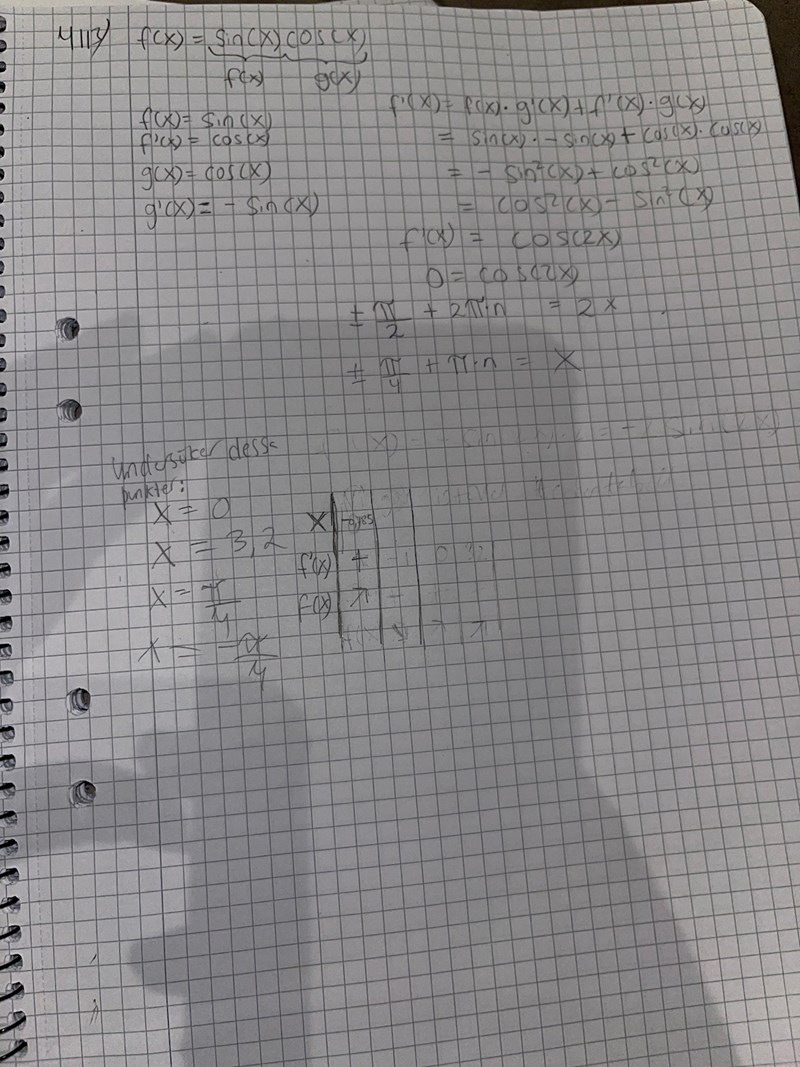 4113) f(x) = sin(x) cos(x)
f(x) g(x)
f(x) = sin(x)
f'(x) = cos(x)
g(x) = cos(x)
g'(x) = - sin(x)
f'(x) = f(x) · g'(x) + f'(x) · g(x)
= sin(x) · - sin(x) + cos(x) · cos(x)
= - sin²(x) + cos²(x)
= cos²(x) - sin²(x)
f'(x) = cos(2x)
0 = cos(2x)
± π/2 + 2π·n = 2x
± π/4 + π·n = x
Undersöker dessa
punkter:
x = 0
x = 3,2
x = π/4
x = -π/4
x -0,785
f'(x) +
f(x) ↗